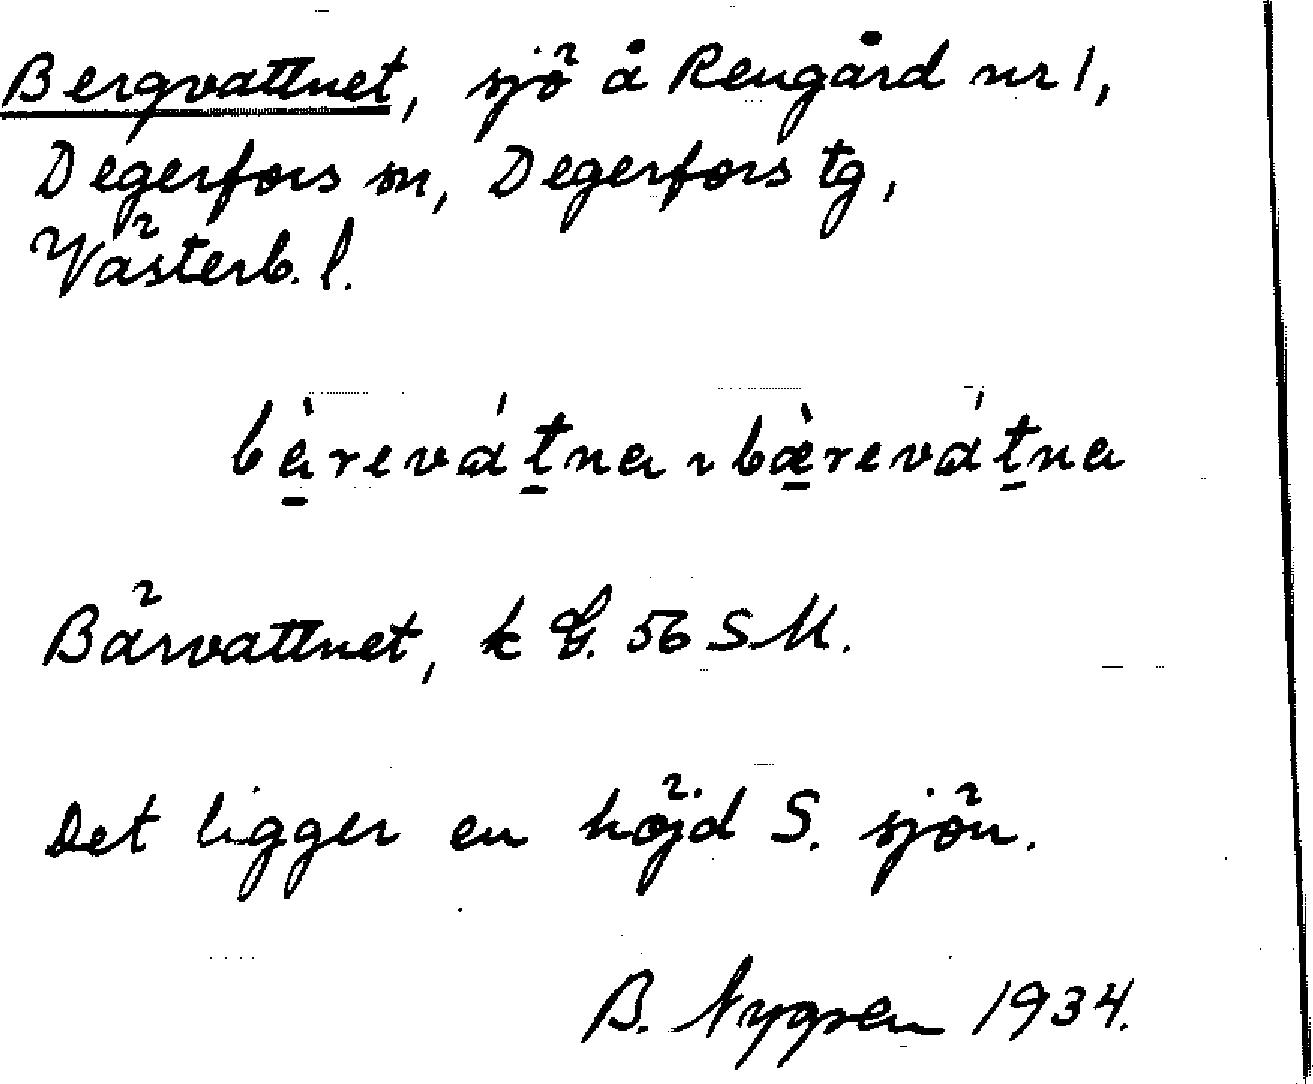 Bergvattnet, sjö å Rengård nr 1,
Degerfors sn, Degerfors tg,
Västerb. l.
bà̱revát̲na ~ bæ̱̀revát̲na
Bärvattnet, k G. 56 SM.
Det ligger en höjd S. sjön.
B. Nygren 1934.